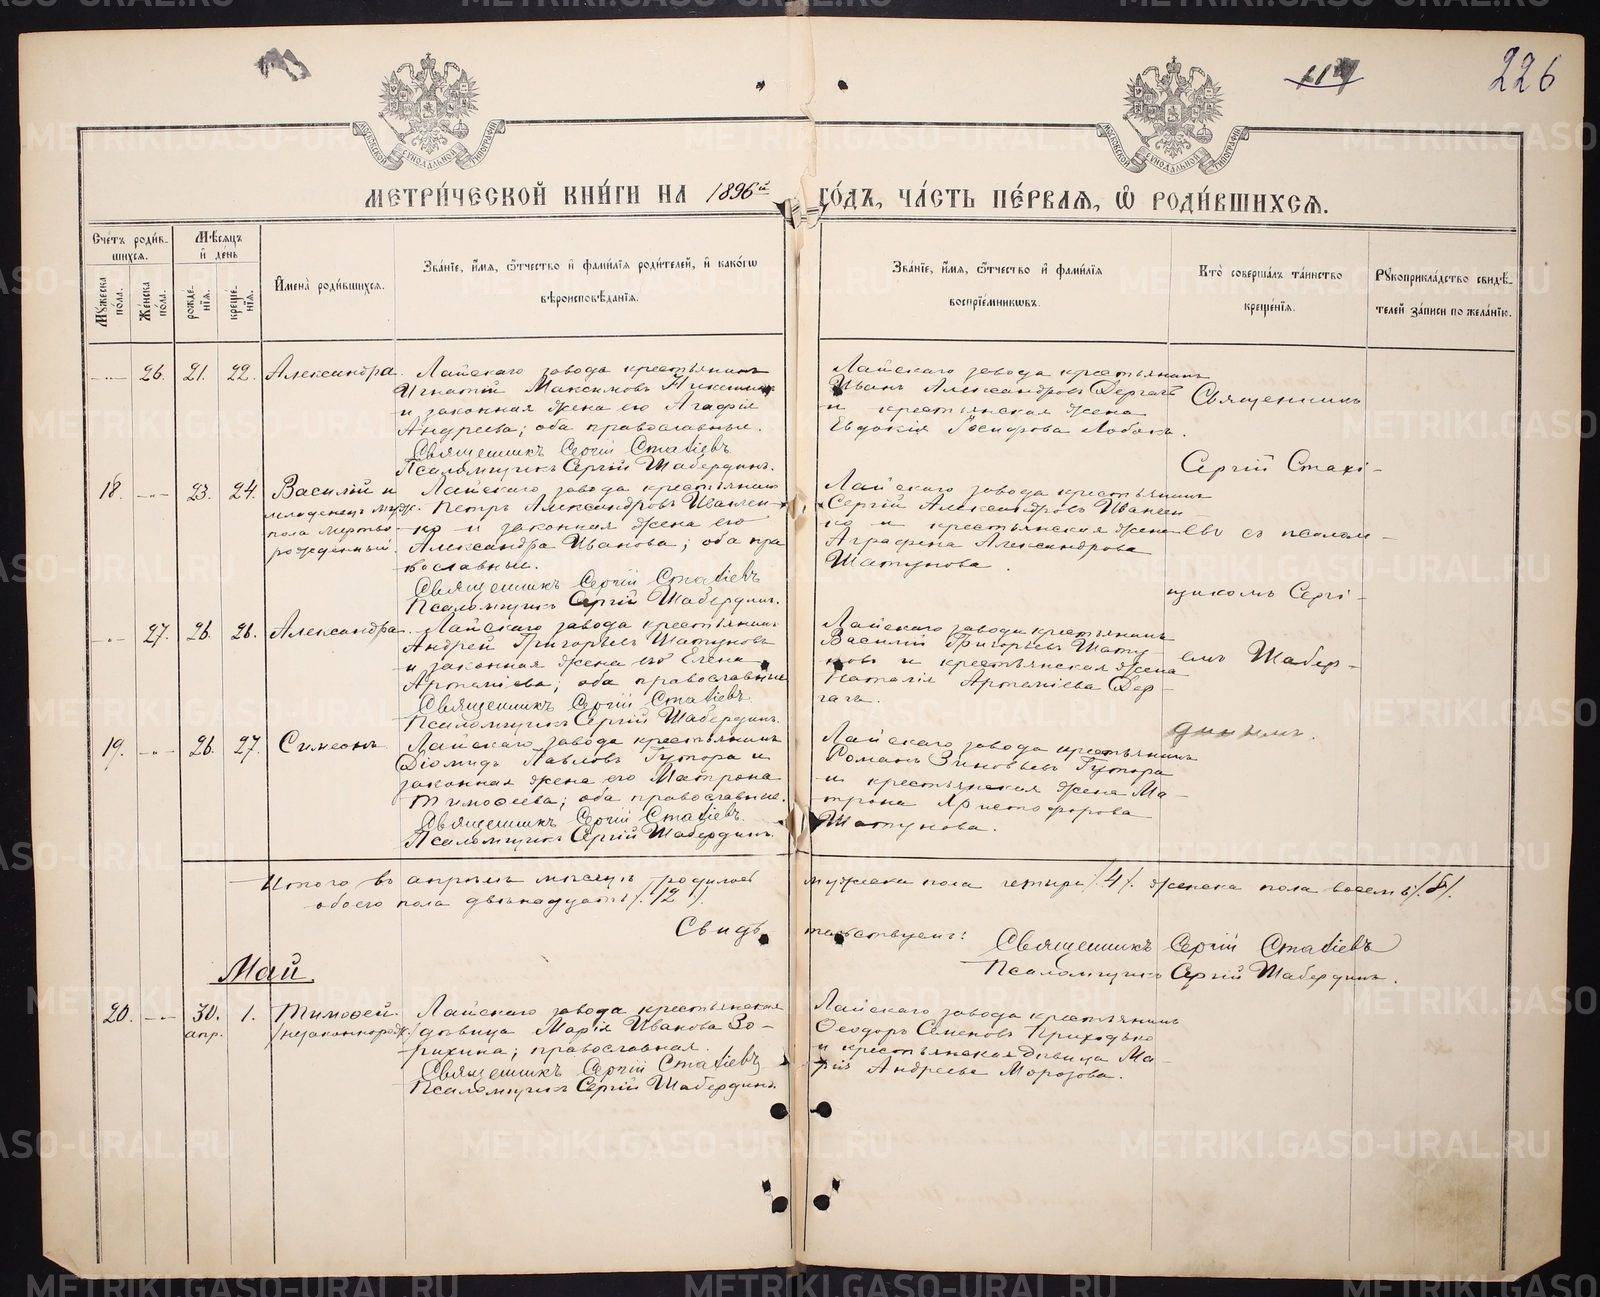 226
МОСКОВСКОЙ СѴНОДАЛЬНОЙ ТИПОГРАФІИ
МОСКОВСКОЙ СѴНОДАЛЬНОЙ ТИПОГРАФІИ
МЕТРИ́ЧЕСКОЙ КНИ́ГИ НА 1896й ГО́ДЪ, ЧА́СТЬ ПЕ́РВАЯ, Ѡ РОДИ́ВШИХСЯ.
Сче́тъ роди́в-
шихся.
Мꙋ́жеска
по́ла.
Же́нска
по́ла.
Мѣ́сяцъ
и҆ де́нь
рожде́-
нїя.
креще́-
нїя.
И҆мена̀ роди́вшихся.
Зва́нїе, и҆́мя, ѻ҆́тчество и҆ фами́лїя роди́телей, и҆ како́гѡ
вѣроисповѣ́данїя.
Зва́нїе, и҆́мя, ѻ҆́тчество и҆ фами́лїя
воспрїе́мникѡвъ.
Кто̀ соверша́лъ та́инство
креще́нїя.
Рꙋкоприкла́дство свидѣ́-
телей за́писи по жела́нїю.
26. 21. 22. Александра
Лайскаго завода крестьянинъ
Игнатій Максимовъ
и законная жена его Агафія
Андреева; оба православные.
Священникъ Сергій Стахіевъ
Псаломщикъ Сергій Шабердинъ.
Лайскаго завода крестьянинъ
Иванъ Александровъ Дергачъ
и крестьянская жена
Евдокія Іосифова Лобода.
18. 23. 24. Василій и
младенецъ муж.
пола мертво-
рожденный.
Лайскаго завода крестьянинъ
Петръ Александровъ Иванен-
ко и законная жена его
Александра Иванова; оба пра
вославные.
Священникъ Сергій Стахіевъ
Псаломщикъ Сергій Шабердинъ.
Лайскаго завода крестьянинъ
Сергій Александровъ Иванен-
ко и крестьянская жена
Аграфена Александрова
Шатунова.
27. 26. 26. Александра
Лайскаго завода крестьянинъ
Андрей Григорьевъ Шатуновъ
и законная жена его Елена
Артеміева; оба православные
Священникъ Сергій Стахіевъ
Псаломщикъ Сергій Шабердинъ.
Лайскаго завода крестьянинъ
Василій Григорьевъ Шату-
новъ и крестьянская жена
Наталія Артеміева Дер-
гачъ.
19. 26. 27. Симеонъ
Лайскаго завода крестьянинъ
Діомидъ Павловъ Гутора и
законная жена его Матрона
Тимофеева; оба православные.
Священникъ Сергій Стахіевъ.
Псаломщикъ Сергій Шабердинъ.
Лайскаго завода крестьянинъ
Романъ Зиновьевъ Гутора
и крестьянская жена Ма-
трона Христофорова
Шатунова.
Священникъ
Сергій Стахі-
евъ съ псалом-
щикомъ Сергі-
емъ Шабер-
динымъ.
Итого въ апрѣлѣ мѣсяцѣ родилось мужеска пола четыре /.4/. женска пола восемь /.8/.
обоего пола двѣнадцать /.12/.
Свидѣтельствуемъ: Священникъ Сергій Стахіевъ
Псаломщикъ Сергій Шабердинъ.
Май
20. 30. апр. 1. Тимофей
/незаконнорож./
Лайскаго завода крестьянская
дѣвица Марія Иванова Зо-
рихина; православная.
Священникъ Сергій Стахіевъ
Псаломщикъ Сергій Шабердинъ.
Лайскаго завода крестьянинъ
Феодоръ Семеновъ Приходько
и крестьянская дѣвица Ма-
рія Андреева Морозова.
METRIKI.GASO-URAL.RU